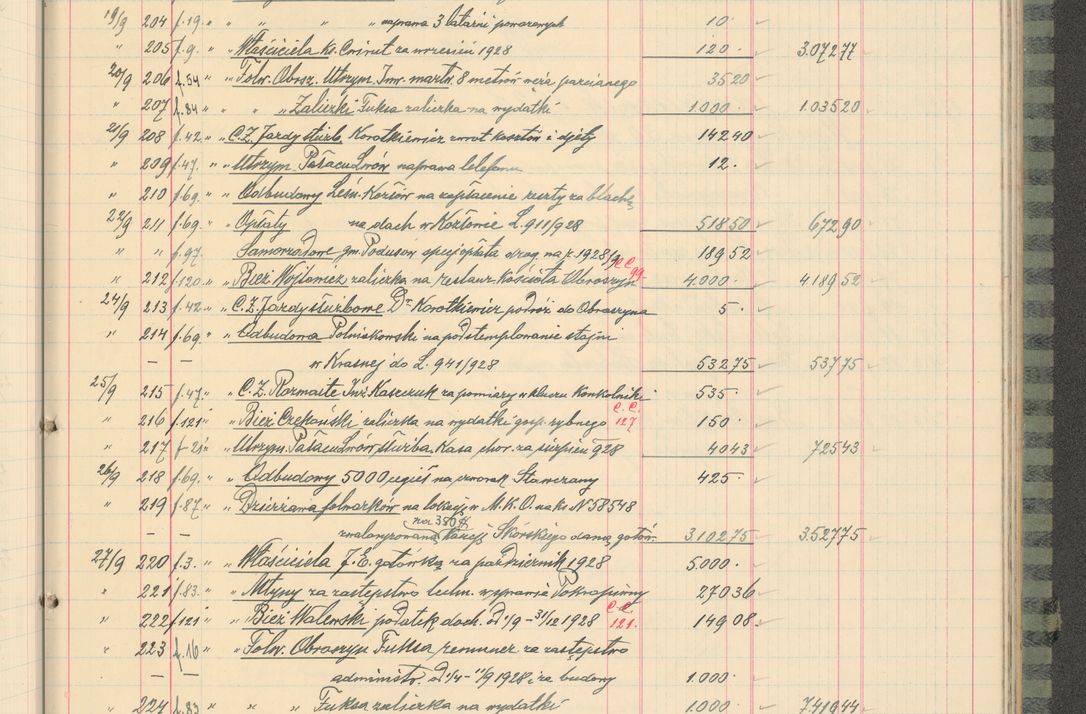 19/9 204 f.19. " " " " naprawa 3 latarni powozowych 10.
" 205 f.9. " Właściciela Ks. Cwinut za wrzesień 1928 120. 3.07277
20/9 206 f.54 " Folw. Obrosz. Utrzym. Inw. martw. 8 metrów węża parcianego 3520
" 207 f.84 " " " Zaliczki Fuksa zaliczka na wydatki 1.000. 1.03520
21/9 208 f.42. " C.Z. Jazdy służb. Korotkiewicz zwrot kosztów i djety 14240
" 209 f.47. " Utrzym. Pałacu Lwów naprawa telefonu 12.
" 210 f.69. " Odbudowy Leśn. Kozłów na zapłacenie reszty za blachę
22/9 211 f.69. " Opłaty na dach w Kozłowie L. 911/928 51850 67290
" " f.97. Samorządowe gm. Podusów opłata drog. na r. 1928/9 18952
" 212 f.120. " Bież Wojtowicz zaliczka na restaur. Kościoła Obroszyn C.C. 99. 4.000. 4.18952
24/9 213 f.42. " C.Z. Jazdy służbowe Dr Korotkiewicz podróż do Obroszyna 5.
" 214 f.69. " Odbudowa Polniakowski na podstemplowanie stajni
— — w Krasnej do L. 941/928 53275 53775
25/9 215 f.47. " C.Z. Rozmaite Inż. Kasczuk za pomiary w kluczu Konkolniki 535.
" 216 f.121 " Bież Czekoński zaliczka na wydatki gosp. rybnego C.C. 127 150.
" 217 f-21 " Utrzym. Pałacu Lwów służba Kasa chor. za sierpień 928 4043 72543
26/9 218 f.69. " Odbudowy 5000 cegieł na czworak Stawczany 425.
" 219 f.87. " Dzierżawa folwarków na lokację w M.K.O. na ks. N 58548
— — zwaloryzowaną na 350 $ kaucję Skórskiego daną gotów. 3.10275 3.52775
27/9 220 f.3. " Właściciela J.E. gotówką za październik 1928 5.000.
" 221 f.83. " Młyny za zastępstwo techn. w sprawie Pokropiwny 27036
" 222 f121 " Bież Walewski podatek doch. od 1/9 – 31/12 1928 C.C. 121. 14908.
" 223 f.16 " Folw. Obroszyn Fuksa remuner. za zastępstwo
— — administr. od 1/4 – 11/9 1928 i za budowy 1.000.
" 224 f.83 " " Fuksa zaliczka na wydatki 1.000. 7.41944